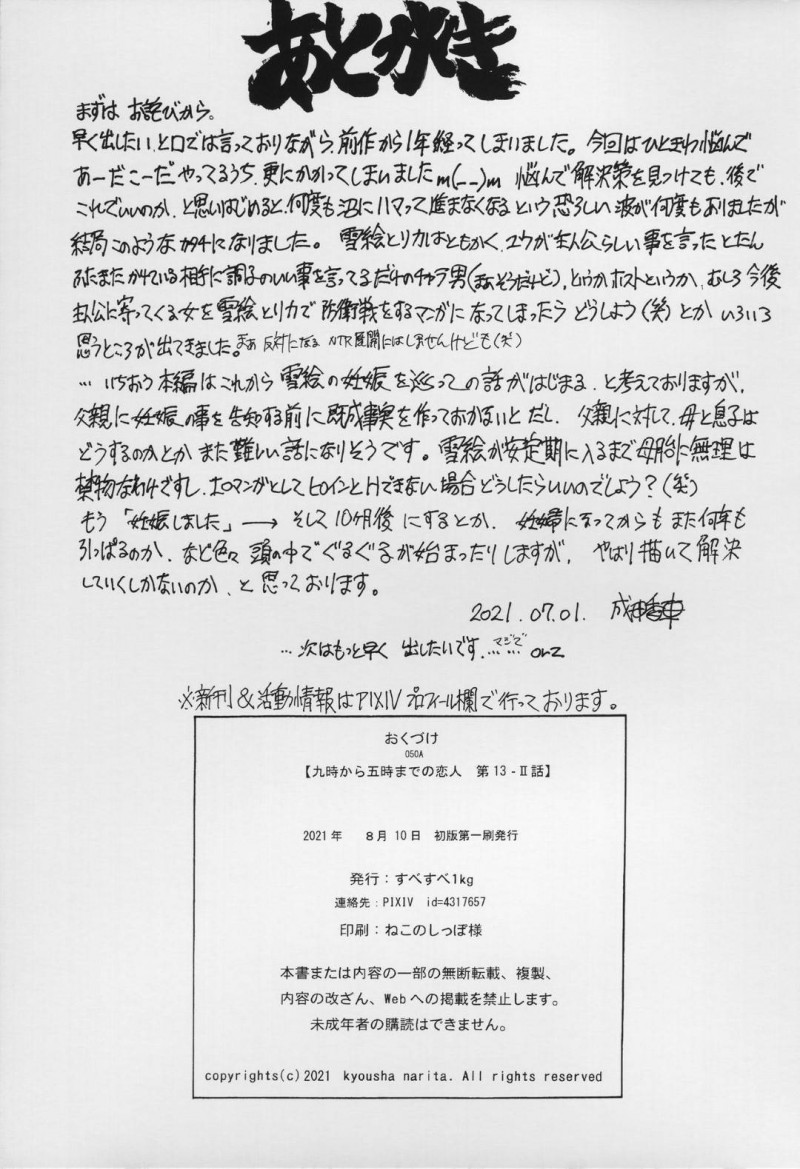 あとがき
まずは お詫びから。
早く出したい、と口では言っておりながら、前作から1年経ってしまいました。今回はひときわ悩んで
あーだこーだやってるうち、更にかかってしまいましたm(_ _)m 悩んで解決策を見つけても、後で
これでいいのか、と思いはじめると、何度も沼にハマって進まなくなるという恐ろしい波が何度もありましたが
結局このようなカタチになりました。雪絵とリカはともかく、ユウが主人公らしい事を言ったとたん
ふたまたかけている相手に調子のいい事を言ってるだけのチャラ男(まあそうだけど)、というかホストというか、むしろ今後
主人公に寄ってくる女を雪絵とリカで防衛戦をするマンガになってしまったらどうしよう(笑)とか いろいろ
思うところが出てきました。まあ 反対になる NTR展開にはしませんけども(笑)
… いちおう本編はこれから雪絵の妊娠を巡っての話がはじまる、と考えておりますが、
父親に妊娠の事を告知する前に既成事実を作っておかないとだし、父親に対して、母と息子は
どうするのかとか また難しい話になりそうです。雪絵が安定期に入るまで母胎に無理は
禁物なわけですし、エロマンガとしてヒロインとHできない場合どうしたらいいのでしょう?(笑)
もう「妊娠しました」→ そして10ヶ月後 にするとか、妊婦になってからもまた何年も
引っぱるのか、など色々 頭の中でぐるぐるが始まったりしますが、やはり描いて解決
していくしかないのか、と思っております。
2021.07.01. 成田香車
…次はもっと早く 出したいです、マジで… orz
※新刊&活動情報はPIXIVプロフィール欄で行っております。
おくづけ
050A
【九時から五時までの恋人 第13-Ⅱ話】
2021年 8月10日 初版第一刷発行
発行:すべすべ1kg
連絡先:PIXIV id=4317657
印刷:ねこのしっぽ様
本書または内容の一部の無断転載、複製、
内容の改ざん、Webへの掲載を禁止します。
未成年者の購読はできません。
copyrights(c)2021 kyousha narita. All rights reserved